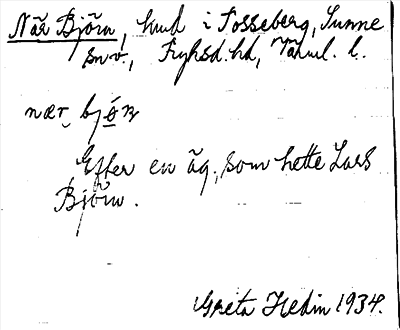 När Björn, hmd i Fosseberg, Sunne
sn., Fryksd. hd, Värml. l.
nær. bjö́n
Efter en äg., som hette Lars
Björn.
Greta Hedin 1934.